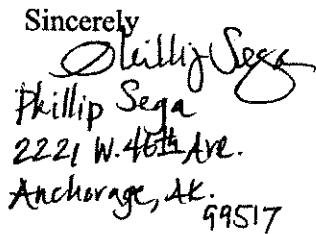 Sincerely
Phillip Sega
Phillip Sega
2221 W. 46th Ave.
Anchorage, AK.
99517